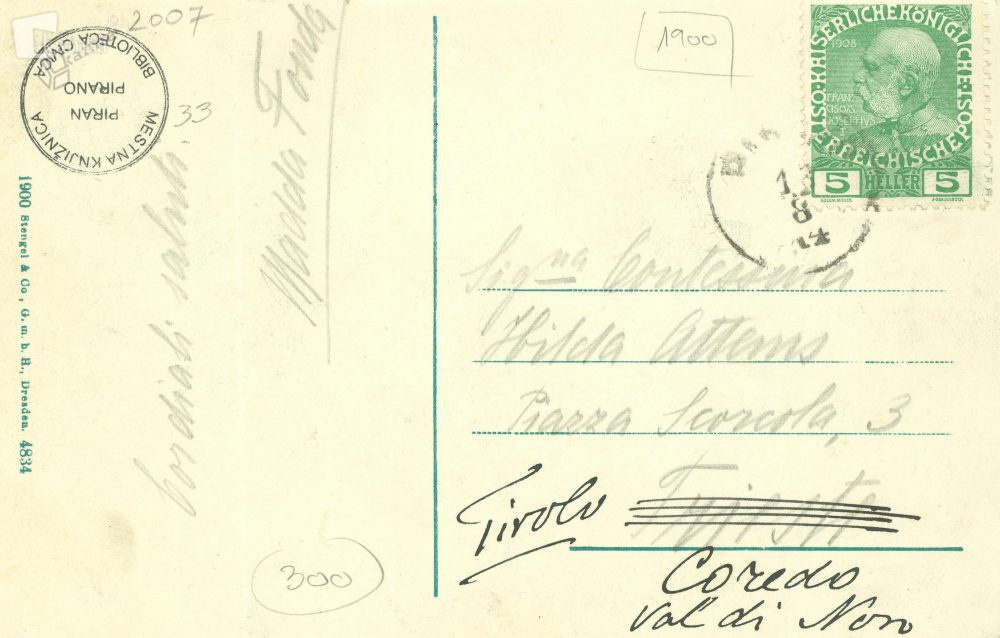 © 2007
MESTNA KNJIŽNICA
PIRAN
PIRANO
BIBLIOTECA CIVICA
33
1900 Stengel & Co., G. m. b. H., Dresden. 4834
Cordiali saluti.
Madda Fonda
300
1900
KAISERLICHEKÖNIGLICHE
ÖSTERREICHISCHEPOST
1908
FRAN
CISCVS
JOSEPHVS
I
5 HELLER 5
18
8
14
Sig.na Contessina
Hilda Attems
Piazza Scorcola, 3
Trieste
Tirolo
Coredo
Val di Non